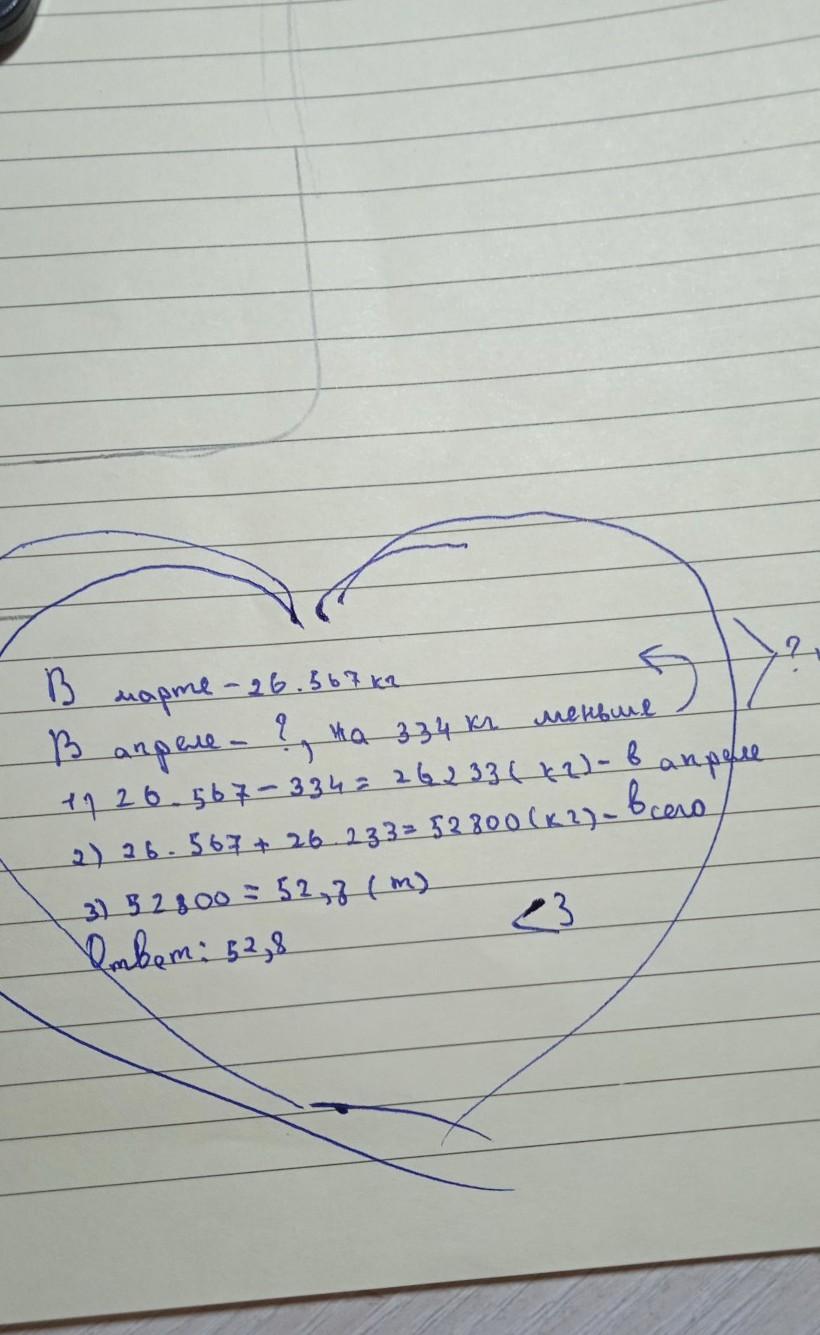 В марте - 26.567 кг
?
В апреле - ?, на 334 кг меньше
1) 26.567 - 334 = 26233 (кг) - в апреле
2) 26.567 + 26.233 = 52800 (кг) - всего
3) 52800 = 52,8 (т)
<3
Ответ: 52,8